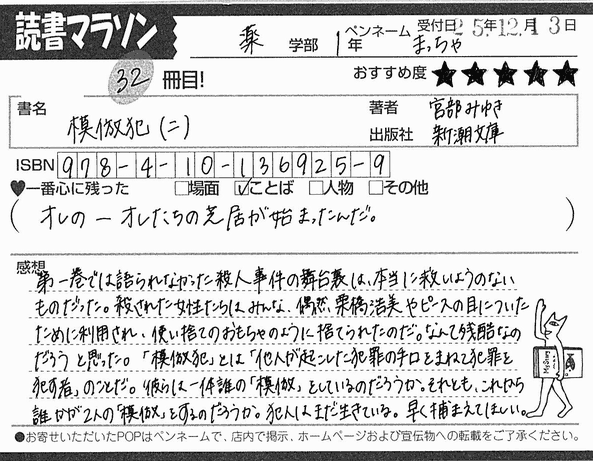 読書マラソン
薬 学部 1年 ペンネーム まっちゃ 受付日25年12月13日
32 冊目!
おすすめ度 ★★★★★
書名 模倣犯(二)
著者 宮部みゆき
出版社 新潮文庫
ISBN 978-4-10-136925-9
♥一番心に残った □場面 ☑ことば □人物 □その他
(オレの ー オレたちの芝居が始まったんだ。)
感想
第一巻では語られなかった殺人事件の舞台裏は、本当に救いようのない
ものだった。殺された女性たちはみんな、偶然、栗橋浩美やピースの目についた
ために利用され、使い捨てのおもちゃのように捨てられたのだ。なんて残酷なの
だろうと思った。「模倣犯」とは「他人が起こした犯罪の手口をまねて犯罪を
犯す者」のことだ。彼らは一体誰の「模倣」をしているのだろうか。それとも、これから
誰かが2人の「模倣」をするのだろうか。犯人はまだ生きている。早く捕まえてほしい。
●お寄せいただいたPOPはペンネームで、店内で掲示、ホームページおよび宣伝物への転載をご了承ください。